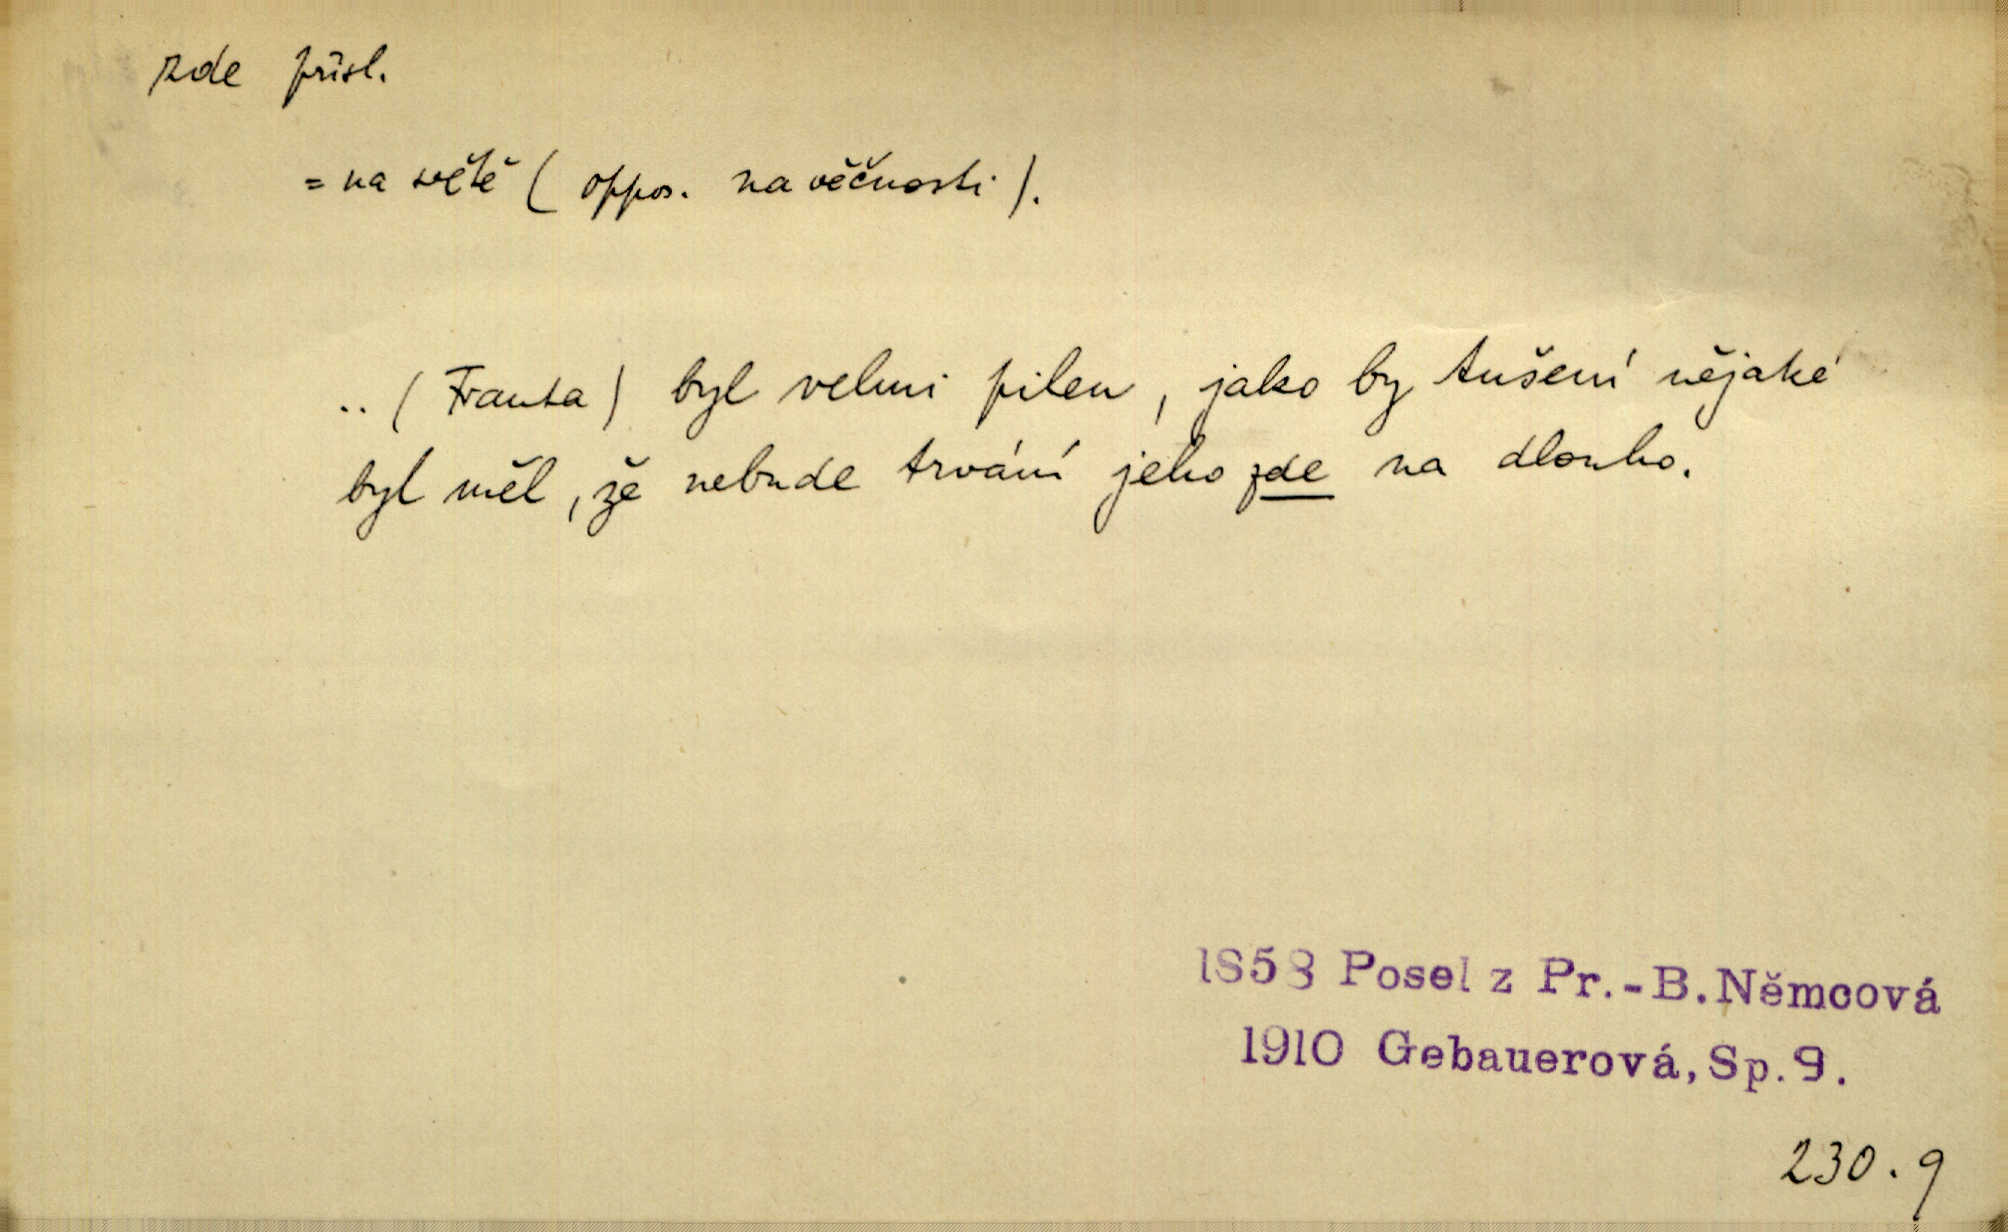 zde přísl.
= na světě ( oppos. na věčnosti ).
.. ( Franta ) byl velmi pilen, jako by tušení nějaké
byl měl, že nebude trvání jeho zde na dlouho.
1858 Posel z Pr.-B.Němcová
1910 Gebauerová, Sp.9.
230.9